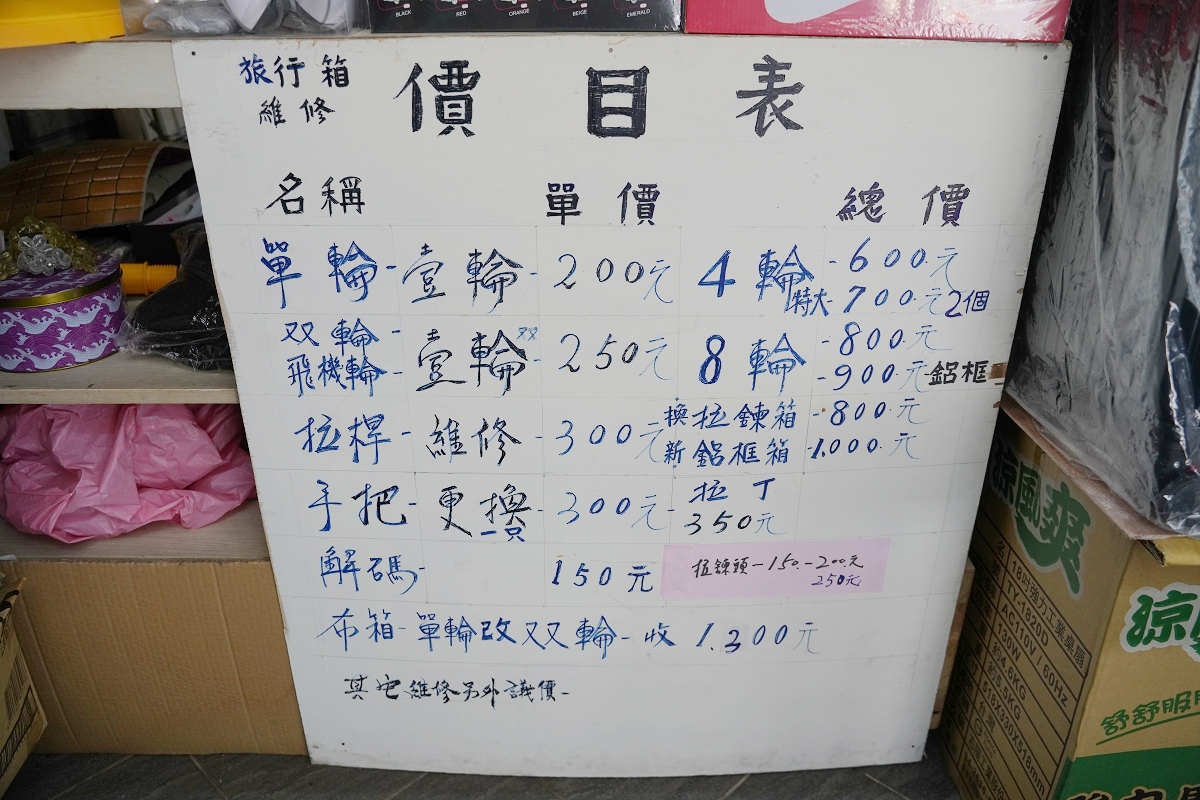 BLACK RED ORANGE BEIGE EMERALD
旅行箱
維修
價目表
名稱 單價 總價
單輪-壹輪-200元 4輪-600元
特大-700元2個
双輪-
飛機輪-壹輪双-250元 8輪-800元
-900元-鋁框
拉桿-維修-300元 換拉鍊箱-800元
新鋁框箱-1.000元
手把-更換一只-300元-拉丁
350元
解碼- 150元 拉鍊頭-150.-200元
250元
布箱-單輪改双輪-收1.200元
其它維修另外議價-
涼風爽
18吋強力工業桌扇
TY-1820D
AC110V/60Hz
130W
約4.6KG
約5.5KG
516X330X518mm
涼
舒舒服